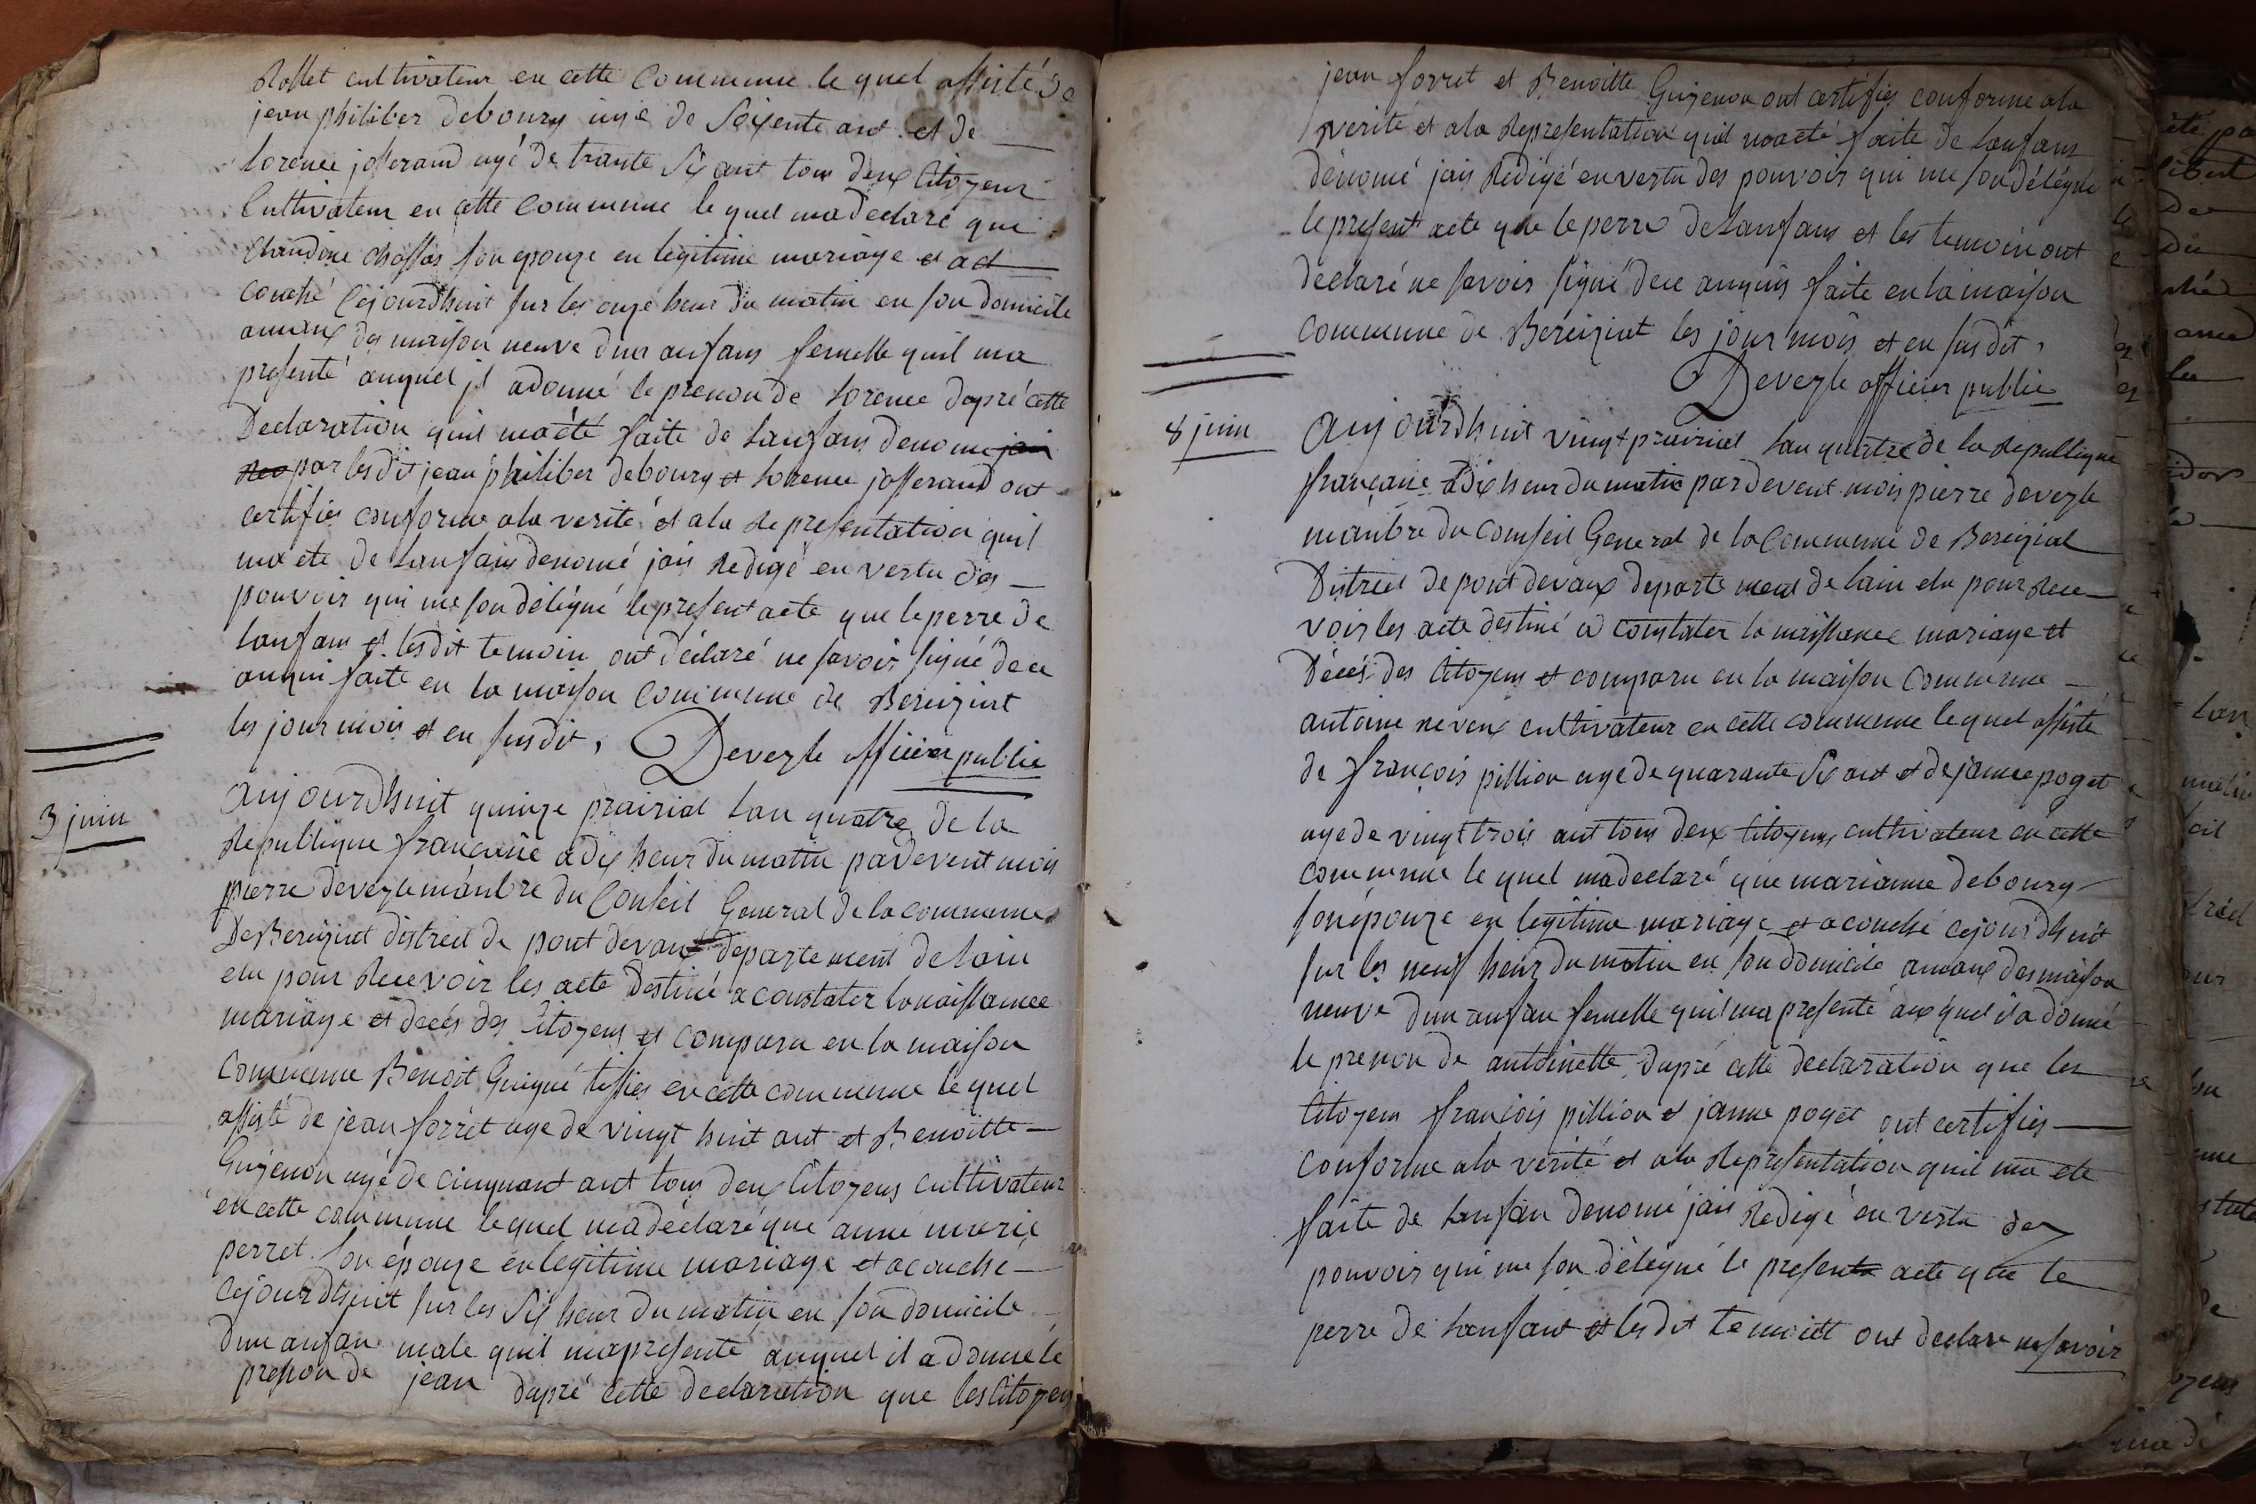 Rollet cultivateur en cette Commune le quel assisté de
jean philiber deboury agé de Soixente ant et de
lorence josserand agé de trante Six ant tous deux Citoyens
Cultivateur en cette Commune le quel ma declaré que
Claudine son epouze en legitime mariage et ad
couché Cejourdhuit sur les onze heur du matin en son domicile
amaux des maison neuve dun anfans femelle quil ma
presenté auquel jl adonné le prenon de lorence dapré cette
Declaration quil maété faite de lanfans denomé jais
par lesdit jean philiber deboury et lorence josserand ont
certifies conforme ala verité et ala Representation quil
ma ete de lanfans denomé jais Redigé en vertu des
pouvoir qui me son délégué le present acte que le perre de
lanfans et lesdit temoin ont déclaré ne savois signé dece
anquis faite en la maison Commune de Bereizint
les jour mois et en susdit, Deveyle officier public
3 juin
Aujourdhuit quinze prairial lan quatre de la
Republique française adix heur du matin padevent mois
pierre deveyle mambre du Conseil General de la commune
De Bereizint distrect de pont devaux departement de lain
elu pour Recevoir les acte Destiné a constater lanaissamce
mariage et decés des Citoyens et comparu en la maison
Commune Benoit Guigué tissies en cette commune le quel
assisté de jean forrét age de vingt huit ant et Benoitte
Guyenon agé de cinquant ant tous deux Citoyens cultivateur
en cette commune lequel ma déclaré que anne marie
perret son épouze en legitime mariage et acouché
Cejourdhuit sur les Six heur du matin en son domicile
dun anfan male quil mapresenté auquel il a donné le
prenon de jean dapré cette declaration que les Citoyens
jean forret et Benoitte Guyenon ont certifies conforme ala
verité et ala Representation quil maeté faite de lanfans
dénomé jais Redigé en vertu des pouvoir qui me son délégué
le present acte que le perre de lanfans et les temoin ont
déclaré ne savois signé dece anquis faite en la maison
commune de Bereizint les jour mois et en susdit,
Deveyle officier public
8 juin
Aujourdhuit vingt prairial lan quatre de la Republique
française adix heur du matin pardevent mois pierre deveyle
mambre du Conseil General de la Commune de Bereizial
Distrect de pont devaux departement de lain elu pour Rece
voir les acte destiné a constater la naissance mariage et
Décés des Citoyens et comparu en la maison Commune
antoine neveux cultivateur en cette commune le quel assisté
de françois pillion age de quarante Six ant et de janne poget
age de vingt trois ant tous deux Citoyens cultivateur en cette
commune le quel ma declaré que marianne deboury
son épouze en legitime mariage et acouché cejourdhuit
sur les neuf heur du matin en son domicile amaux des maison
neuve dun anfan femelle quil ma presenté auquel il a donné
le prenon de antoinette dapré cette declaration que les
Citoyens françois pillion et janne poget ont certifies
Conforme ala verité et ala Representation quil ma ete
faite de lanfan denomé jais Redigé en vertu des
pouvoir qui me son délégué le present acte que le
perre de lanfant et les dit temoin ont declaré ne savoir